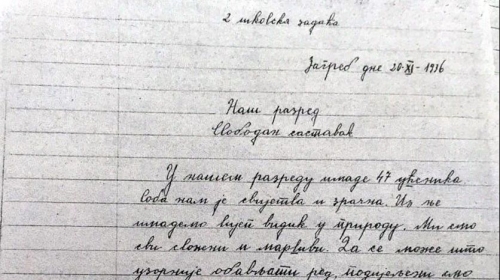 2 школска задаћа
Загреб дне 20-XI-1936
Наш разред
Слободан саставак
У нашем разреду имаде 47 ученика
Соба нам је свијетла и зрачна. Из ње
имадемо лијеп видик у природу. Ми смо
сви сложни и марљиви. Да се може што
узорније обављати ред, подијељени смо